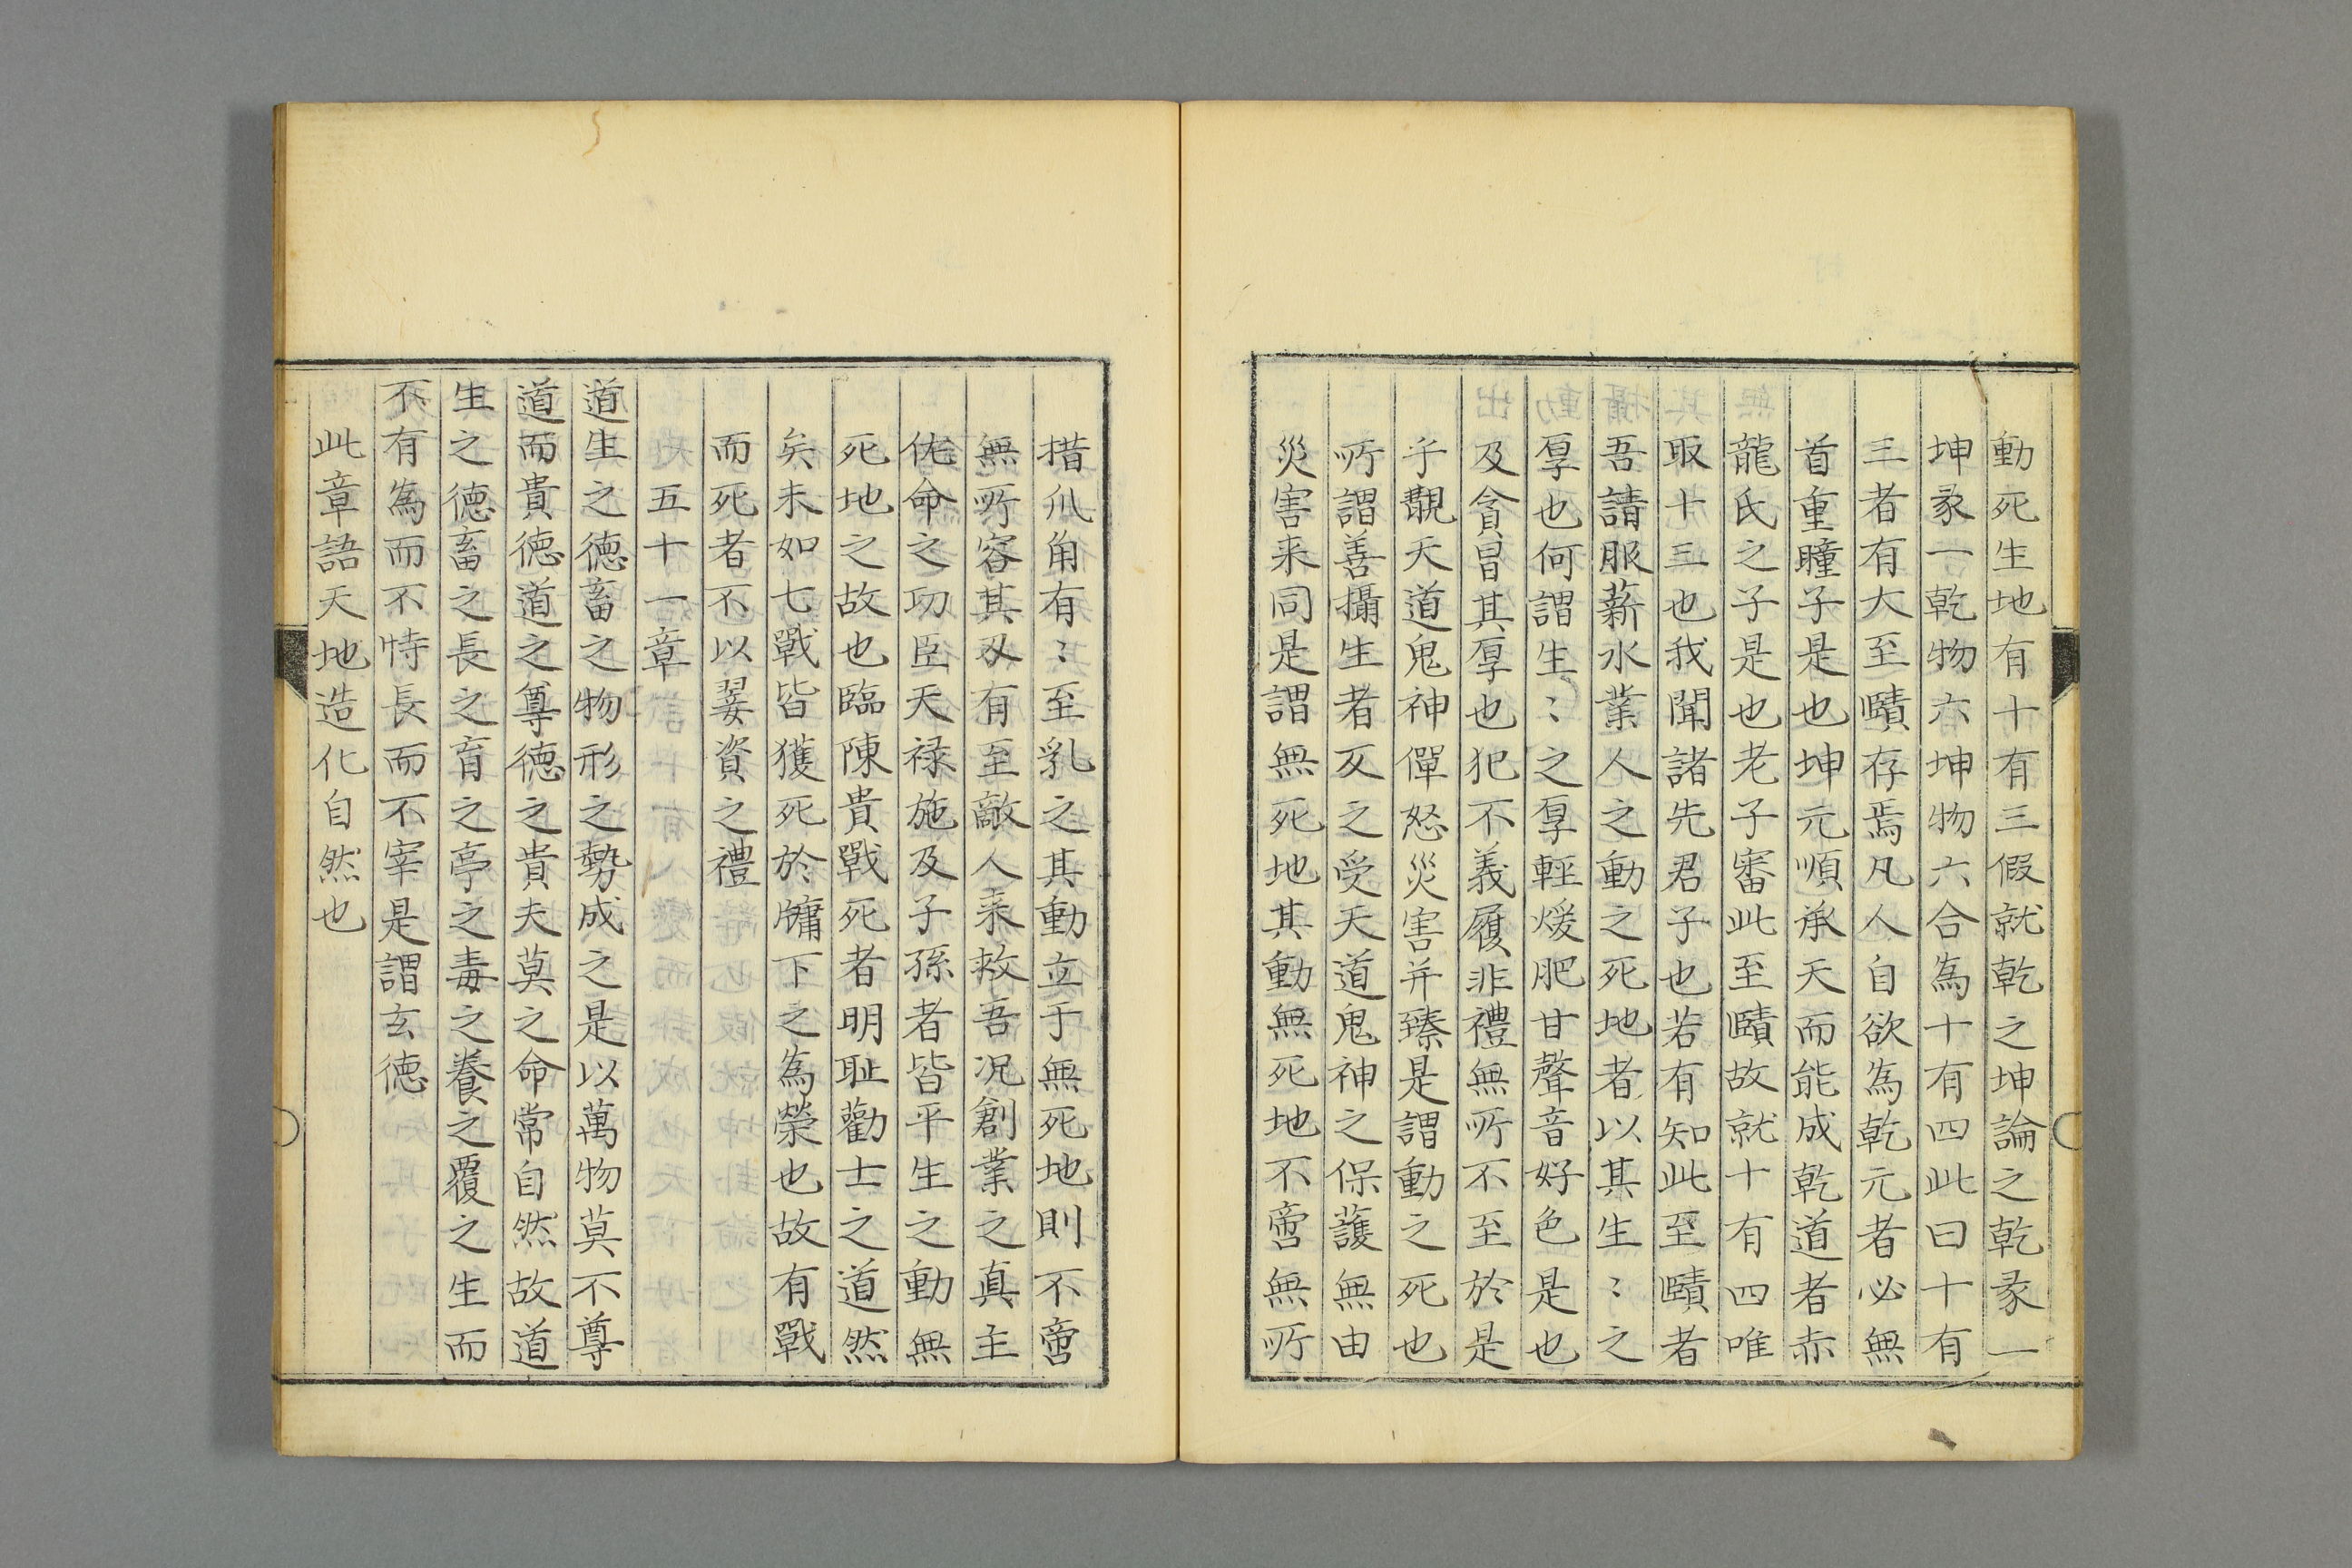 動死生地有十有三假就乾之坤論之乾彖一
坤彖一乾物六坤物六合為十有四此曰十有
三者有大至賾存焉凡人自欲為乾元者必無
首重瞳子是也坤元順承天而能成乾道者赤
龍氏之子是也老子審此至賾故就十有四唯
取十三也我聞諸先君子也若有知此至賾者
吾請服薪水業人之動之死地者以其生〻之
厚也何謂生〻之厚輕煖肥甘聲音好色是也
及貪冒其厚也犯不義履非禮無所不至於是
乎覩天道鬼神僤怒災害并臻是謂動之死也
所謂善攝生者反之受天道鬼神之保護無由
災害来同是謂無死地其動無死地不啻無所
措爪角有〻至乳之其動立于無死地則不啻
無所容其刄有至敵人来救吾况創業之真主
佐命之功臣天禄施及子孫者皆平生之動無
死地之故也臨陳貴戰死者明耻勸士之道然
矣未如七戰皆獲死於牖下之為榮也故有戰
而死者不以翣資之禮
五十一章
道生之德畜之物形之勢成之是以萬物莫不尊
道而貴德道之尊德之貴夫莫之命常自然故道
生之德畜之長之育之亭之毒之養之覆之生而
不有為而不恃長而不宰是謂玄德
此章語天地造化自然也